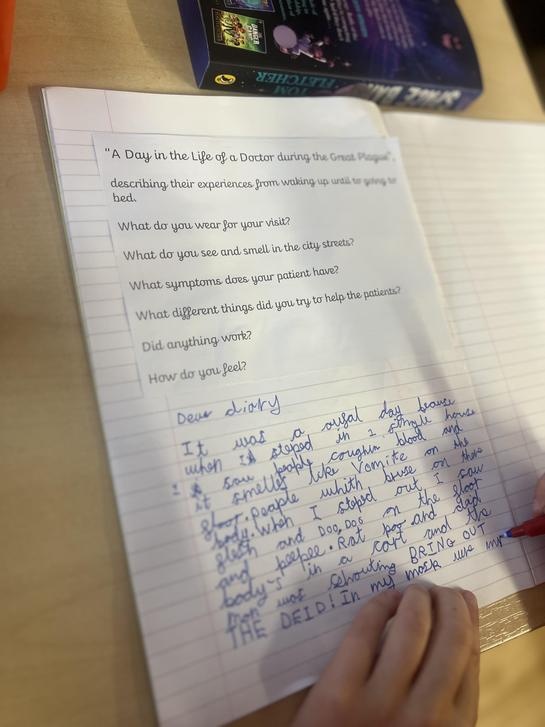 TOM
FLETCHER
SPACE
"A Day in the Life of a Doctor during the Great Plague",
describing their experiences from waking up until to going to
bed.
What do you wear for your visit?
What do you see and smell in the city streets?
What symptoms does your patient have?
What different things did you try to help the patients?
Did anything work?
How do you feel?
Dear diary
It was a day
when I steped in 1 single house
I saw people coughin blood and
it smelles like Vomite on the
floor. People whith on there
body. When I steped out I saw
and on the floor
and peepee. Rat poo and
body's in a cart and the
man was shouting BRING OUT
THE DEID! In my mask